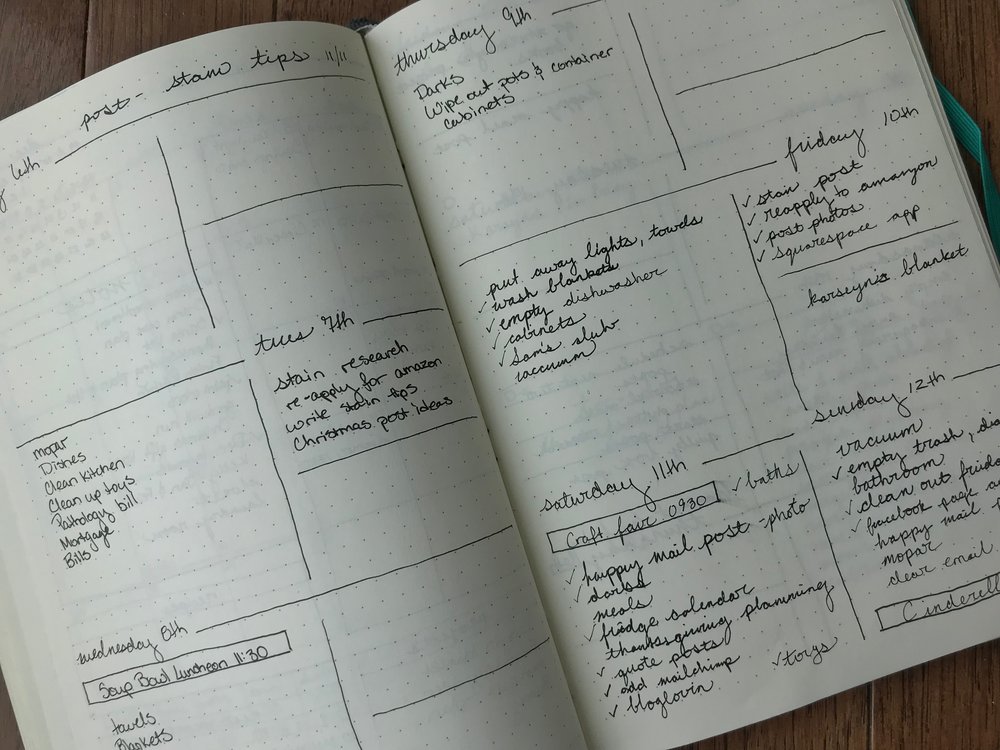 post - stain tips 11/11
6th
tues 7th
mopar
Dishes
Clean Kitchen
Clean up toys
Pathology bill
Mortgage
Bills
stain research
re-apply for amazon
write stain tips
Christmas post ideas
wednesday 8th
Soup Bowl Luncheon 11:30
towels
Blankets
thursday 9th
Darks
Wipe out pots & container
cabinets
friday 10th
put away lights, towels
✓ wash blankets
✓ empty dishwasher
✓ cabinets
✓ Sam's club
vaccuum
✓ stain post
✓ reapply to amazon
✓ post photos
✓ squarespace app
blanket
saturday 11th
Craft fair 0930
✓ baths
✓ happy mail post - photo
✓ darks
meals
✓ fridge calendar
thanksgiving planning
✓ quote posts
✓ add mailchimp
✓ bloglovin
✓ toys
sunday 12th
vacuum
✓ empty trash,
bathroom
✓ clean out
✓ facebook page
happy mail
mopar
clear email